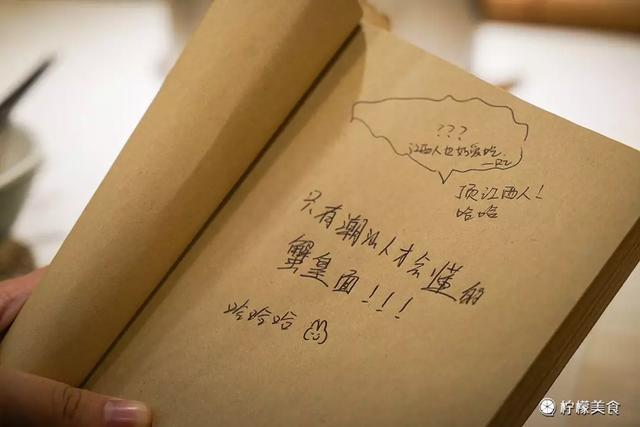 ???
江西人也好爱吃
顶江西人!
哈哈
只有潮汕人才会懂的
蟹皇面!!!
哈哈哈
柠檬美食